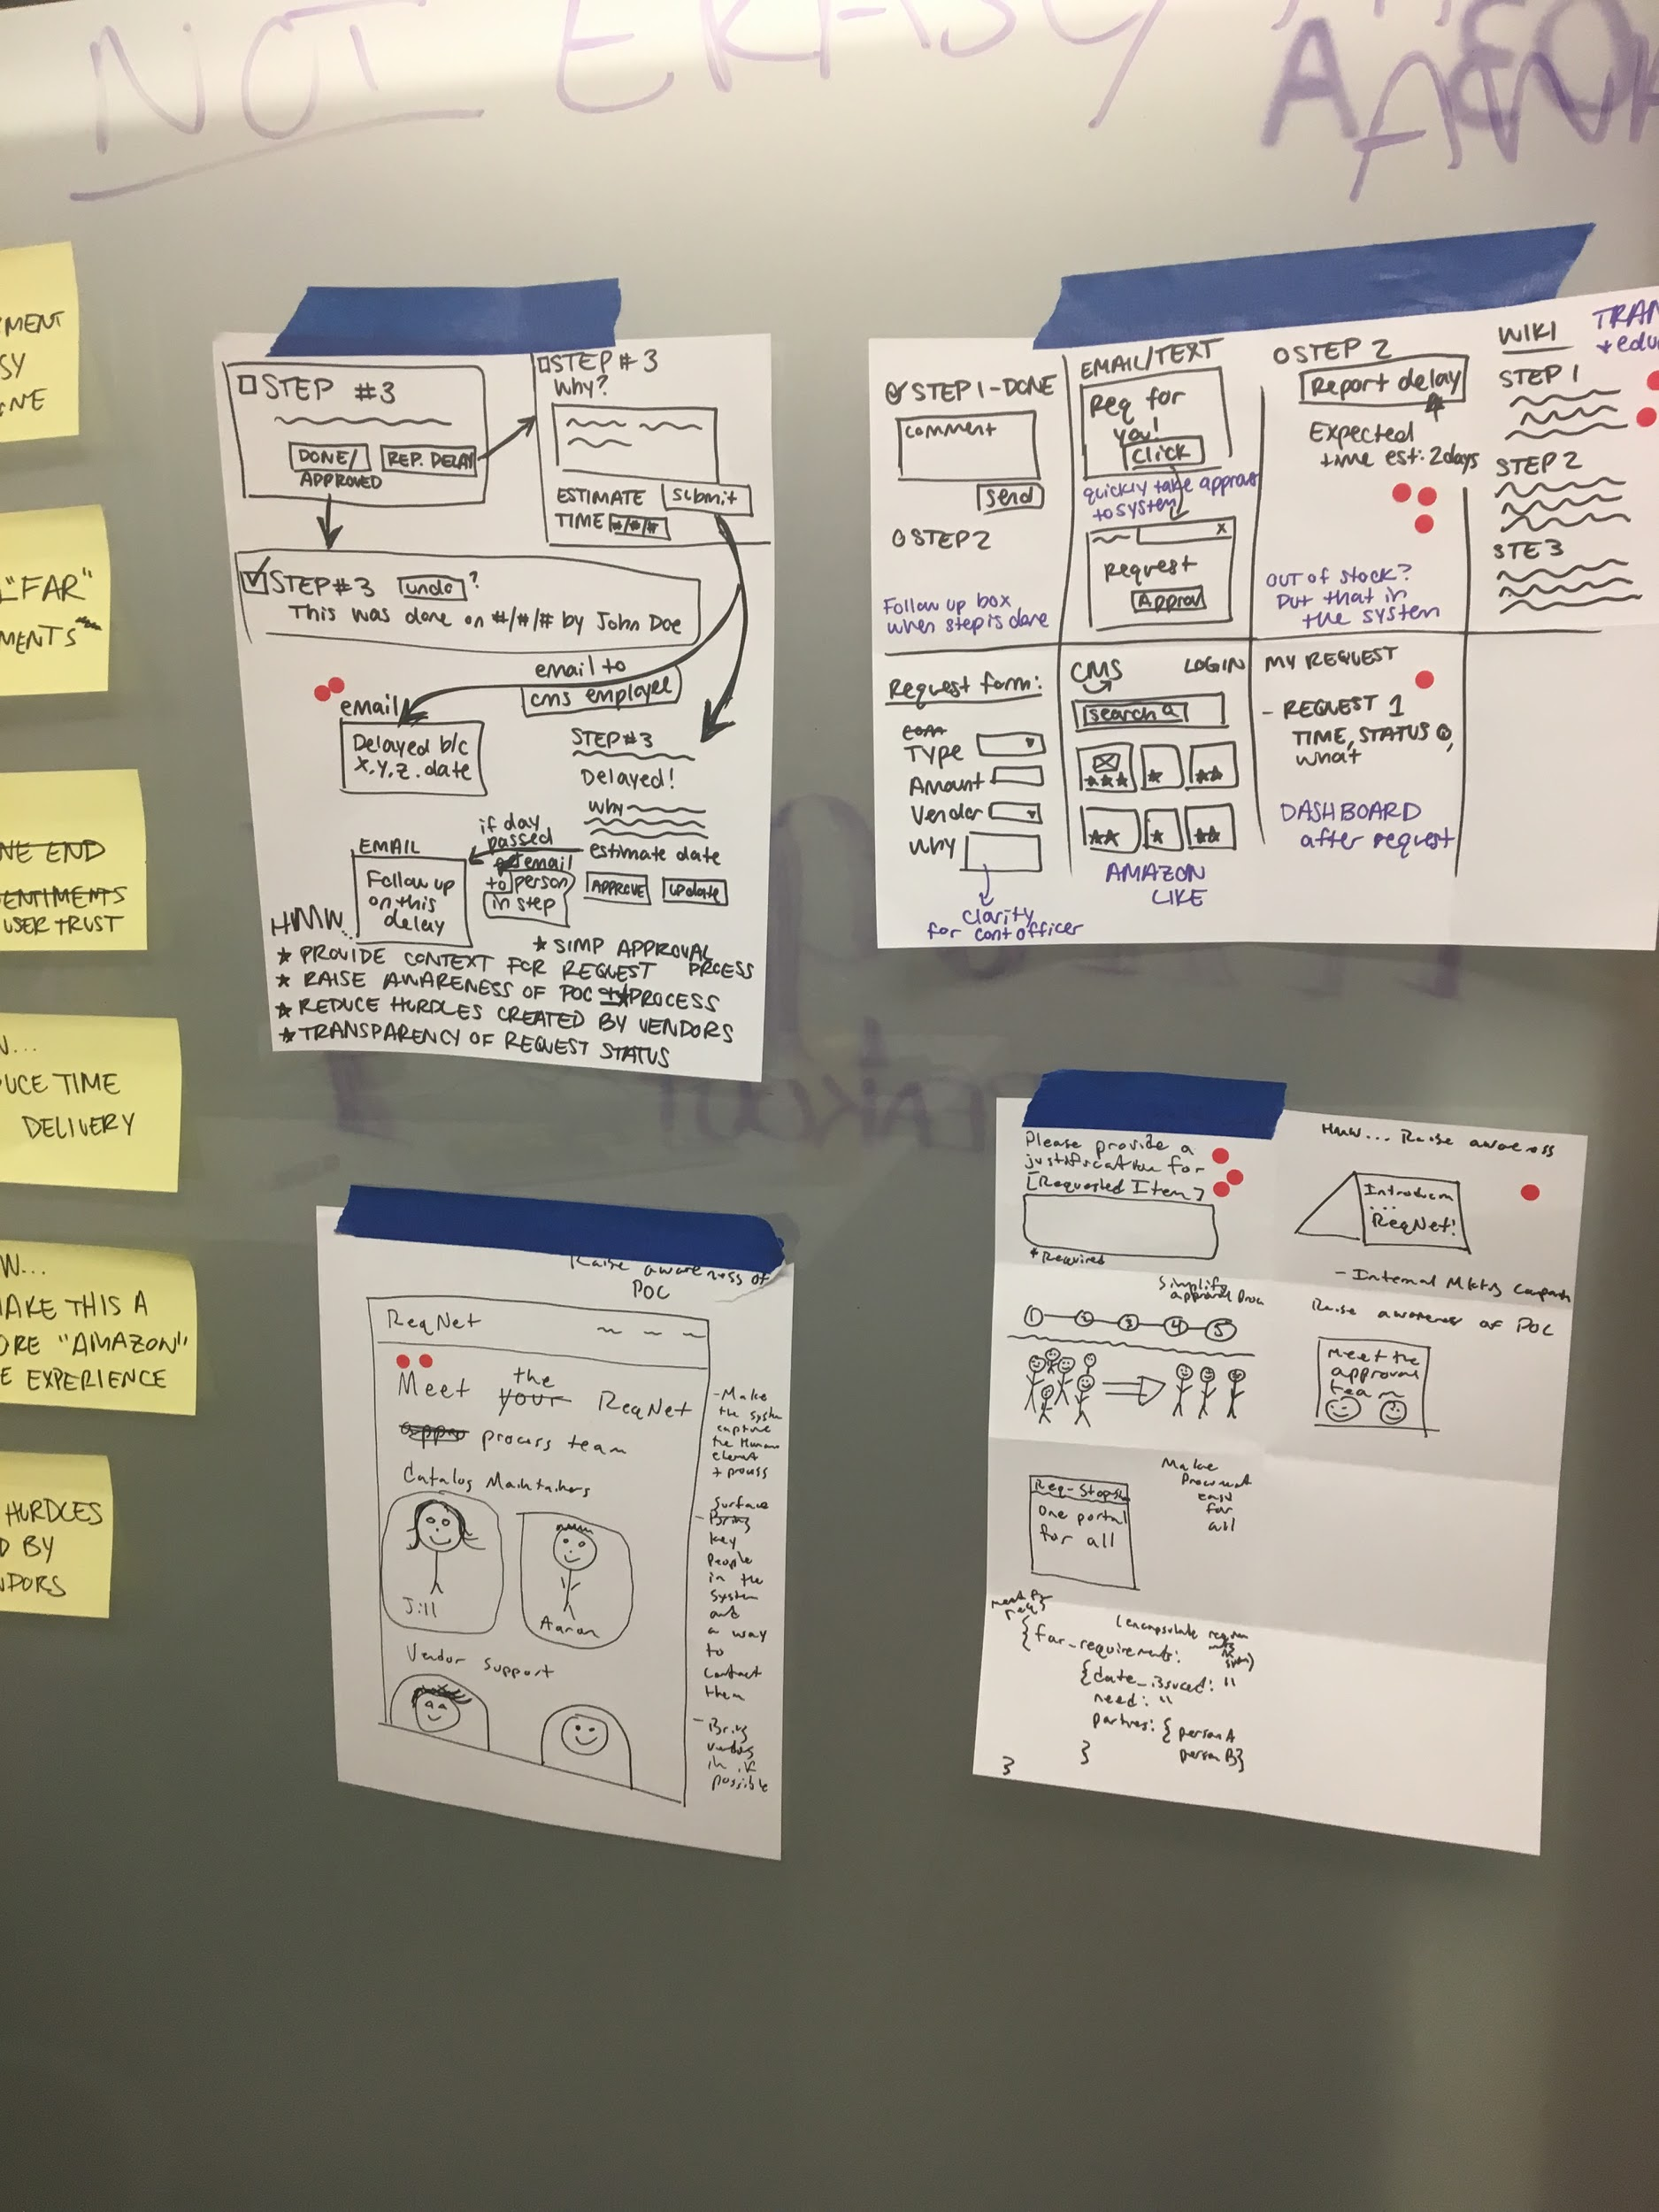 NOT ERASE
MENT
SY
NE
"FAR"
MENTS
NE END
ENTIMENTS
USER TRUST
W...
UCE TIME
DELIVERY
W...
MAKE THIS A
ORE "AMAZON"
E EXPERIENCE
HURDLES
D BY
NDORS
STEP #3
DONE/
APPROVED
REP. DELAY
STEP #3
Why?
ESTIMATE
TIME #/#/#
submit
STEP #3 undo ?
This was done on #/#/# by John Doe
email to
cms employee
email
Delayed b/c
x.y.z. date
STEP #3
Delayed!
why
estimate date
APPROVE update
if day
passed
email
to person
in step
EMAIL
Follow up
on this
delay
HMW...
★ SIMP APPROVAL
PRCESS
★ PROVIDE CONTEXT FOR REQUEST
★ RAISE AWARENESS OF POC PROCESS
★ REDUCE HURDLES CREATED BY VENDORS
★ TRANSPARENCY OF REQUEST STATUS
STEP 1-DONE
comment
send
STEP 2
Follow up box
when step is done
EMAIL/TEXT
Req for
you!
Click
quickly take approval
to system
x
Request
Approval
STEP 2
Report delay
Expected
time est: 2days
OUT OF STOCK?
Put that in
the system
WIKI
TRAN
+ edu
STEP 1
STEP 2
STE 3
Request form:
Type
Amount
Vendor
Why
clarity
for cont officer
CMS LOGIN
search
AMAZON
LIKE
MY REQUEST
- REQUEST 1
TIME, STATUS
what
DASHBOARD
after request
Raise awareness of
POC
ReqNet
Meet the your ReqNet
process team
Catalog Maintainers
Jill
Aaron
Vendor Support
- Make
the system
capture
the Human
element
+ process
Surface
- Bring
key
People
in the
System
and
a way
to
contact
them
- Bring
vendors
in if
possible
Please provide a
justification for
[Requested Item]
* Required
HMW... Raise awareness
ReqNet!
Simplify
approval
1 2 3 4 5
Raise awareness of POC
Meet the
approval
team
Make
Procurement
easy
for
all
One portal
for all
{far_requirements:
{date_issued: "
need: "
partners: { person A
person B}
}
}